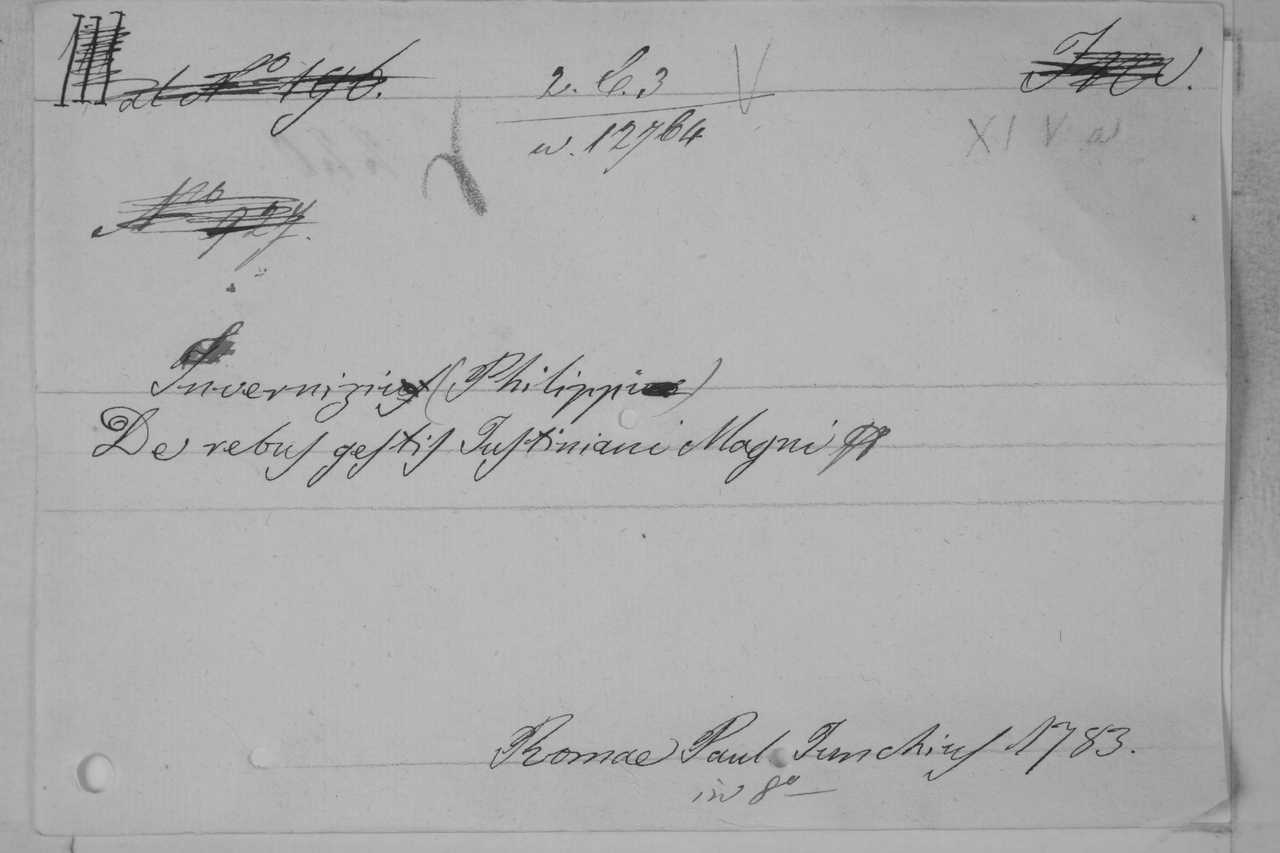 III ad No 196.
2. C. 3 V
w. 12764
XI V a
No 927.
Invernizius (Philippus)
De rebus gestis Justiniani Magni
Romae Paul Junchius 1783.
in 8o